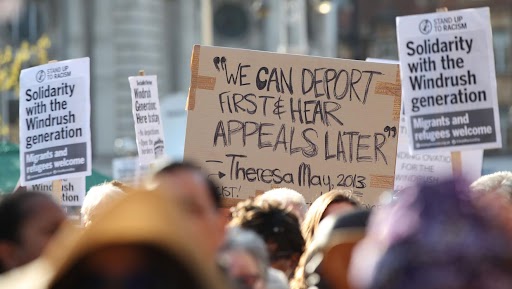 STAND UP
TO RACISM
Solidarity
with the
Windrush
generation
Migrants and
refugees welcome
STAND UP
TO RACISM
Windrush
Generation:
Here today
"WE CAN DEPORT
FIRST & HEAR
APPEALS LATER"
- THERESA MAY, 2013
IST!
STAND UP TO
RACISM
Solidarity
with the
Windrush
generation
Migrants and
refugees welcome